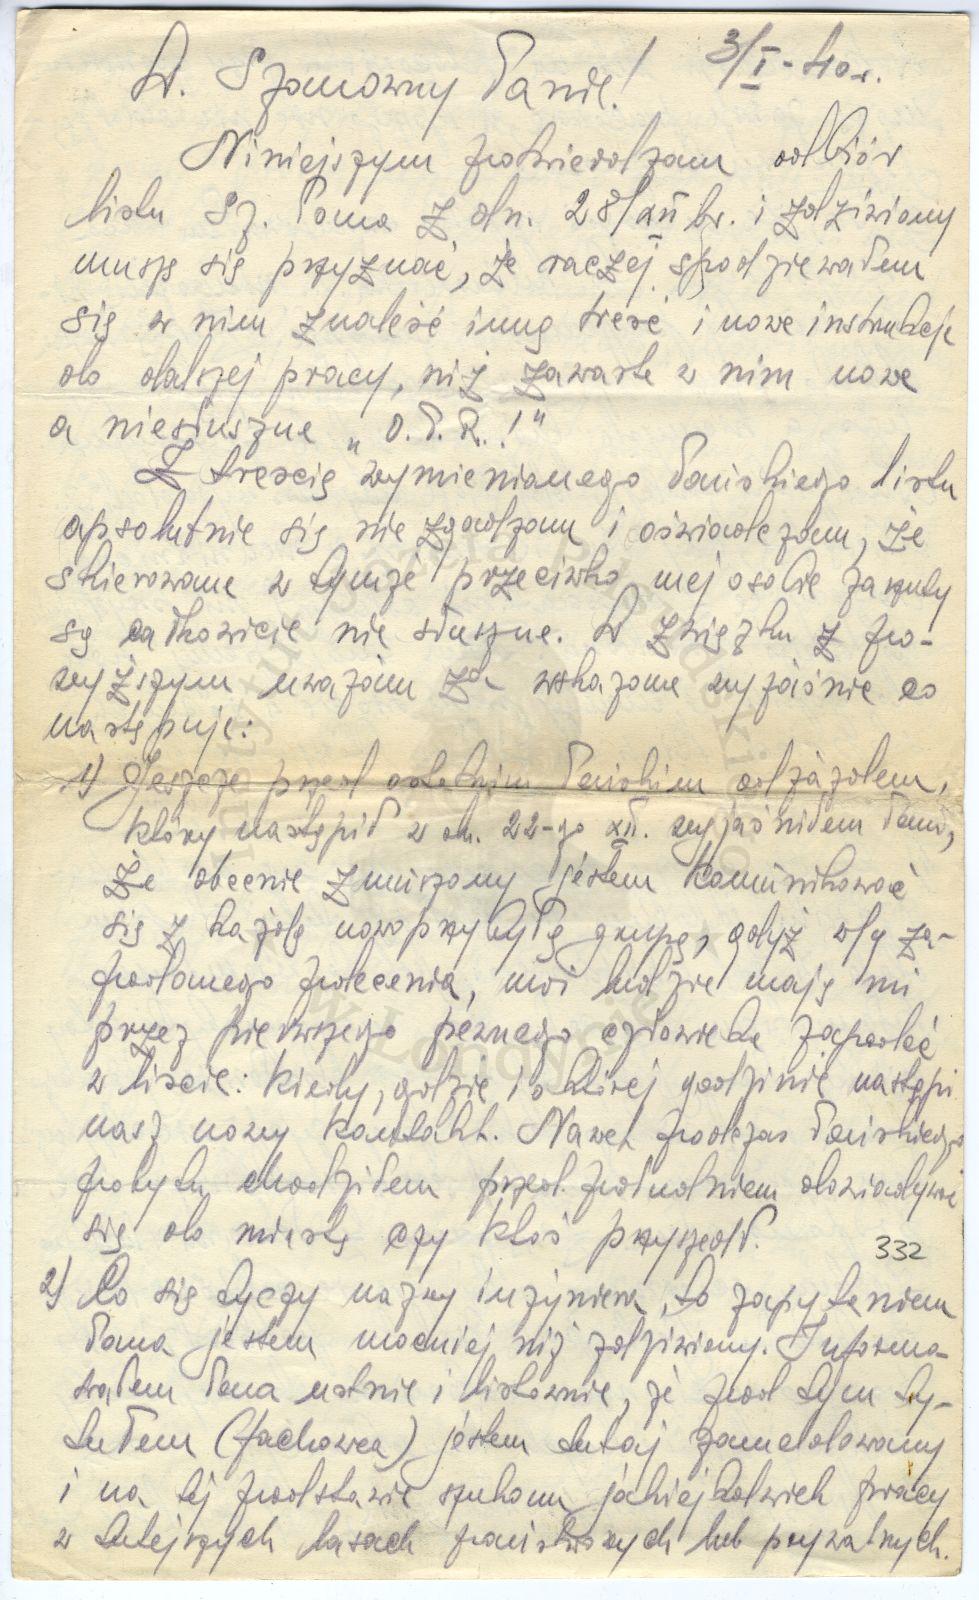 3/I-40r.
W. Szanowny Panie!
Niniejszym potwierdzam odbiór
listu Sz. Pana z dn. 28/XII br. i zdziwiony
muszę się przyznać, że raczej spodziewałem
się w nim znaleść inną treść i nowe instrukcje
do dalszej pracy, niż zawarte w nim nowe
a niesłuszne „O.P.R.!"
Z treścią wymienianego Pańskiego listu
apsolutnie się nie zgadzam i oświadczam, że
skierowane w tymże przeciwko mej osobie zarzuty
są całkowicie nie słuszne. W związku z po-
wyższym uważam za wskazane wyjaśnić co
następuje:
1) Jeszcze przed ostatnim Pańskim odjazdem,
który nastąpił w dn. 22-go XII. wyjaśniłem Panu,
że obecnie zmuszony jestem komunikować
się z każdą nowoprzybyłą grupą, gdyż w/g za-
podanego polecenia, moi ludzie mają mi
przez pierwszego pewnego człowieka zapodać
w liście: kiedy, gdzie i o której godzinie nastąpi
nasz nowy kontakt. Nawet podczas Pańskiego
pobytu chodziłem przed południem dowiadywać
się do miasta czy ktoś przyszedł.
332
2) Co się tyczy nazwy inżyniera, to zapytaniem
Pana jestem mocniej niż zdziwiony. Informo-
wałem Pana ustnie i listownie, że pod tym ty-
tułem (fachowca) jestem tutaj zameldowany
i na tej podstawie szukam jakiejkolwiek pracy
w tutejszych lasach państwowych lub prywatnych.